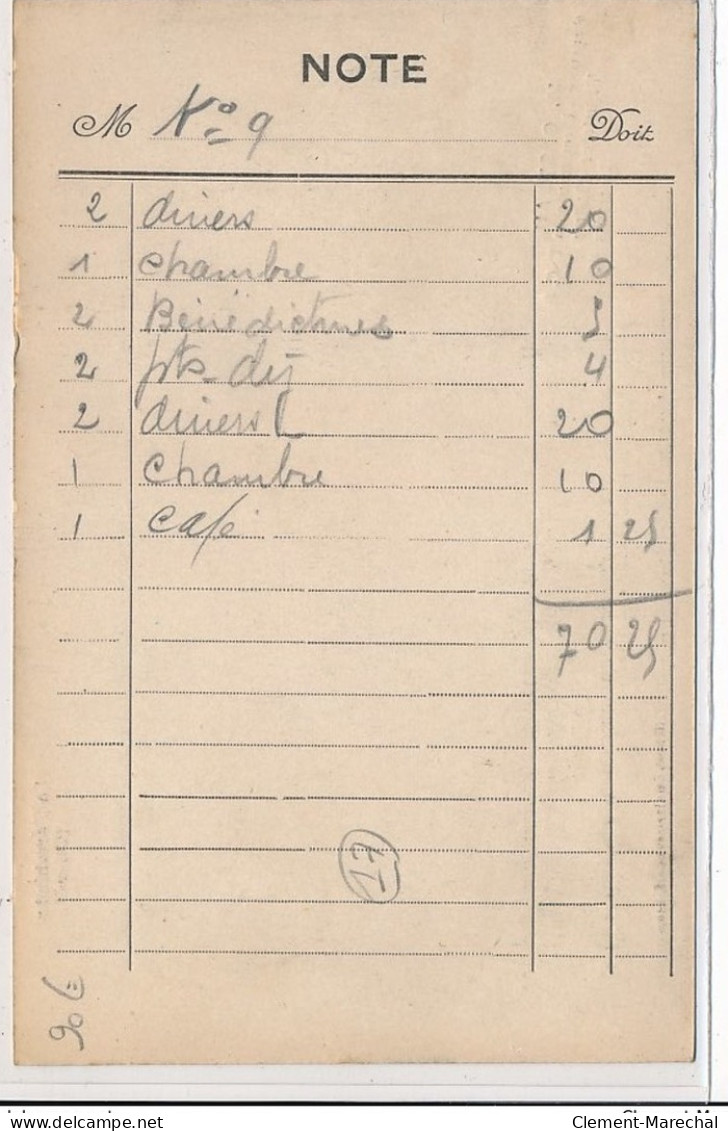 NOTE
M No 9 Doit
2 diners 20
1 chambre 10
2 Bénédictines 5
2 pts-dej 4
2 diners 20
1 chambre 10
1 café 1 25
70 25
17
90 E
Clement-Marechal